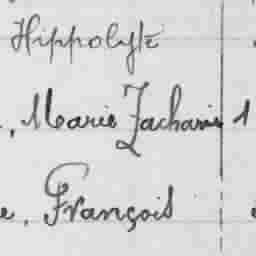 Hippolyte
, Marie Zacharie 1
e, François